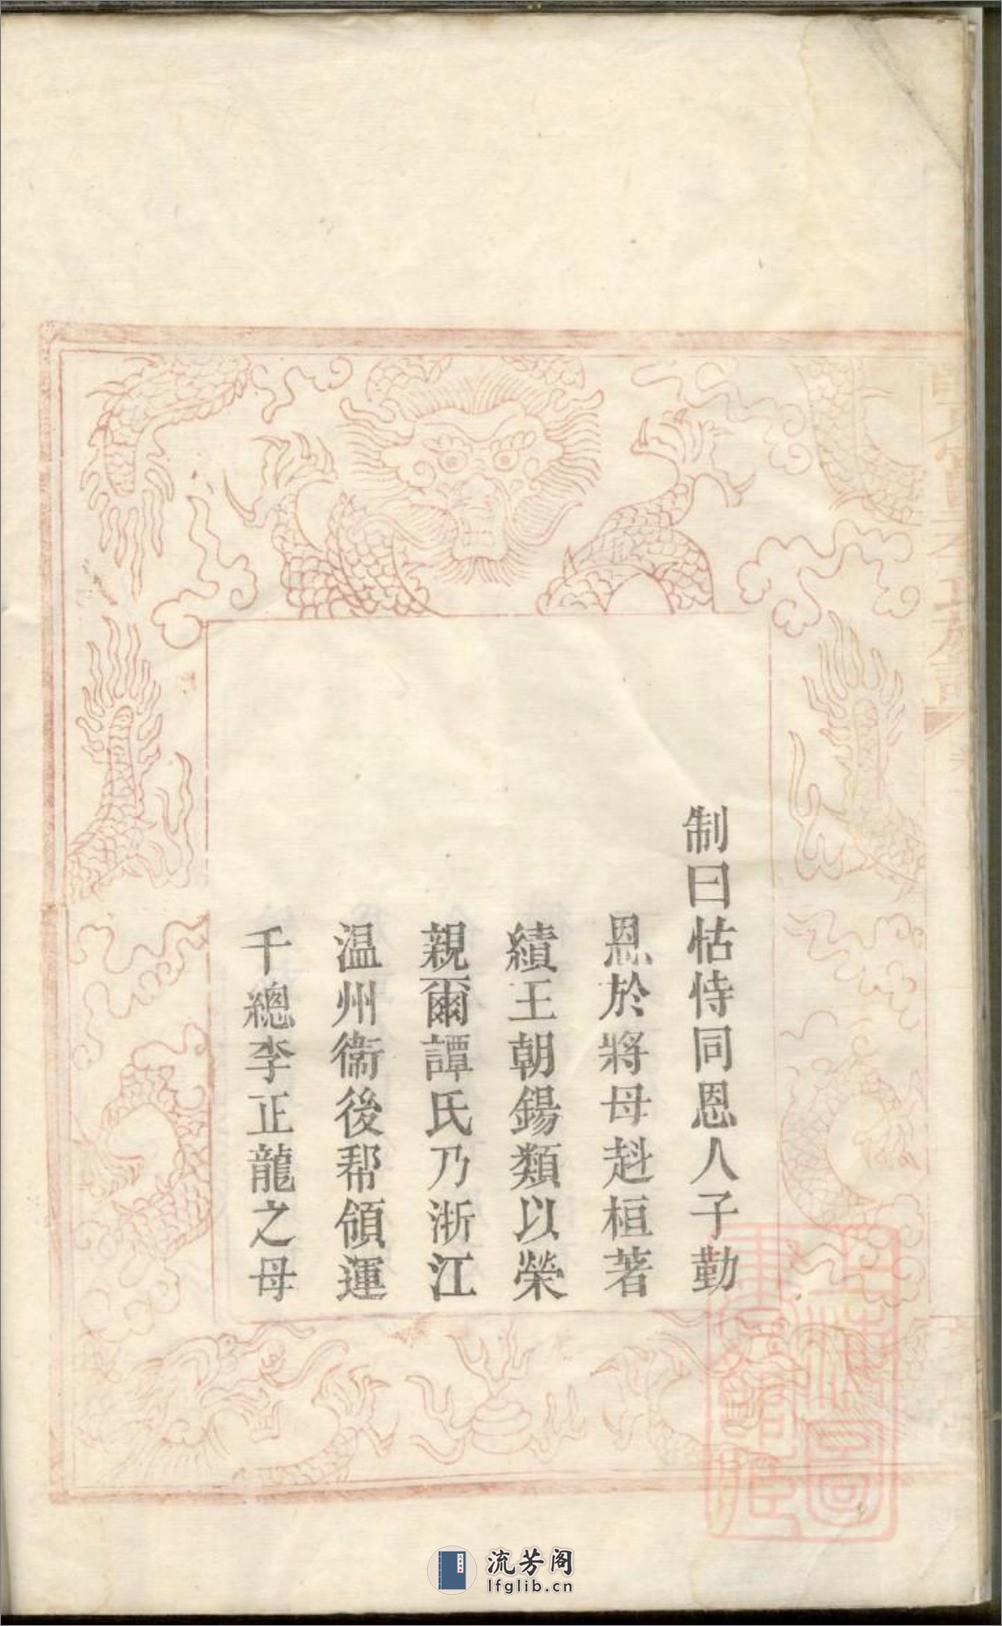 制曰怙恃同恩人子勤
恩於將母赳桓著
績王朝錫類以榮
親爾譚氏乃浙江
温州衞後帮領運
千總李正龍之母
上海圖
書館藏
流芳阁
lfglib.cn